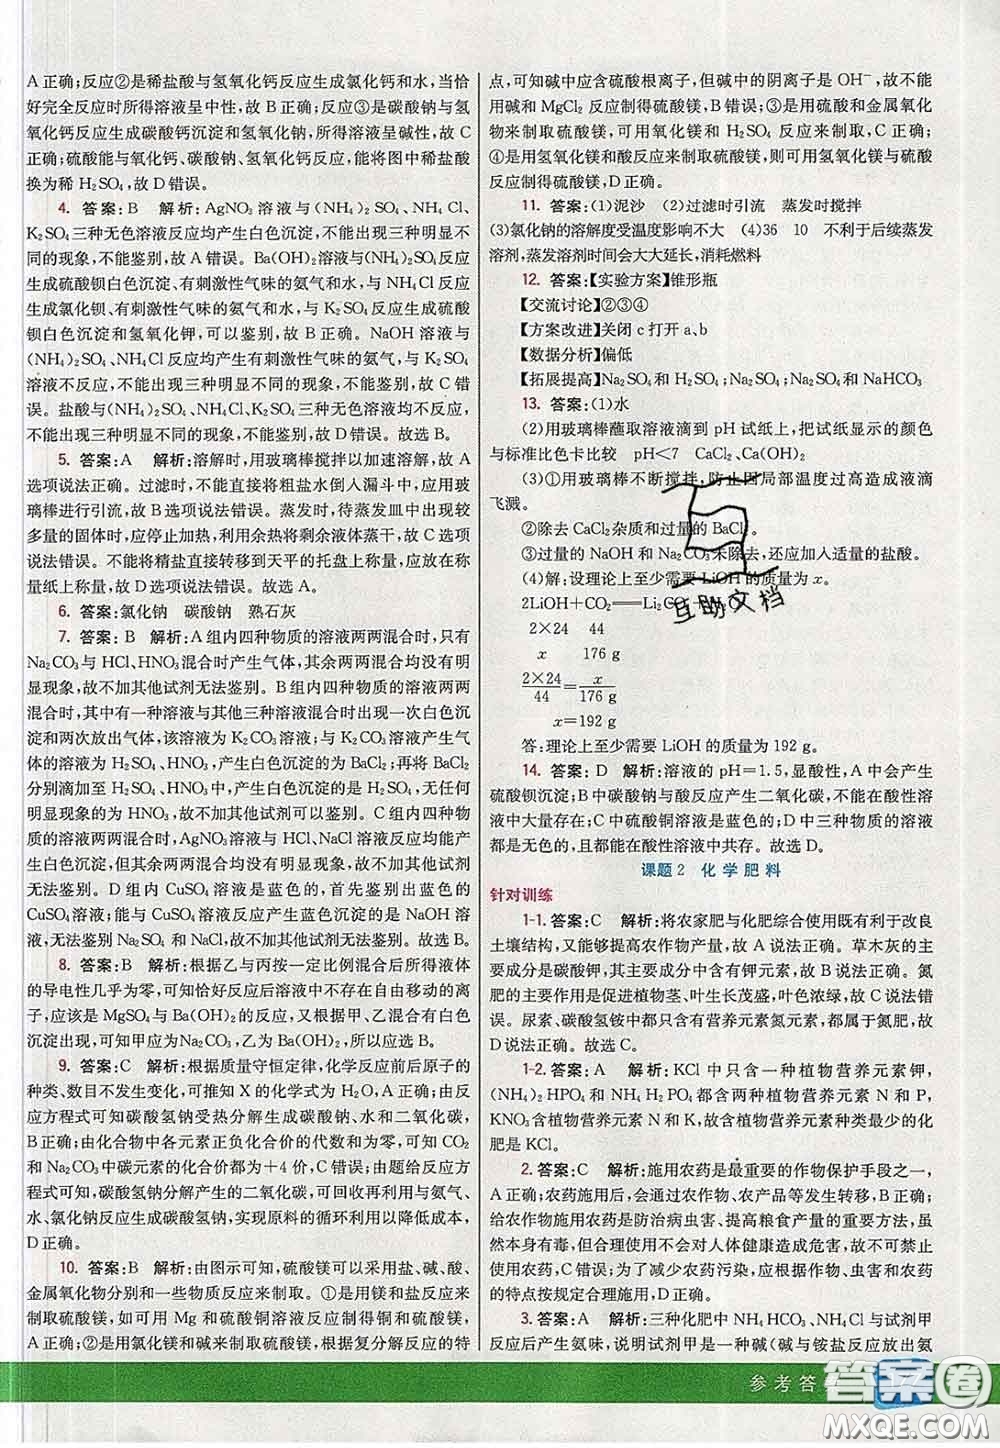 A正确;反应②是稀盐酸与氢氧化钙反应生成氯化钙和水,当恰
好完全反应时所得溶液呈中性,故B正确;反应③是碳酸钠与氢
氧化钙反应生成碳酸钙沉淀和氢氧化钠,所得溶液呈碱性,故C
正确;硫酸能与氧化钙、碳酸钠、氢氧化钙反应,能将图中稀盐酸
换为稀H₂SO₄,故D错误。
4. 答案:B 解析:AgNO₃溶液与(NH₄)₂SO₄、NH₄Cl、
K₂SO₄三种无色溶液反应均产生白色沉淀,不能出现三种明显不
同的现象,不能鉴别,故A错误。Ba(OH)₂溶液与(NH₄)₂SO₄反应
生成硫酸钡白色沉淀、有刺激性气味的氨气和水,与NH₄Cl反应
生成氯化钡、有刺激性气味的氨气和水,与K₂SO₄反应生成硫酸
钡白色沉淀和氢氧化钾,可以鉴别,故B正确。NaOH溶液与
(NH₄)₂SO₄、NH₄Cl反应均产生有刺激性气味的氨气,与K₂SO₄
溶液不反应,不能出现三种明显不同的现象,不能鉴别,故C错
误。盐酸与(NH₄)₂SO₄、NH₄Cl、K₂SO₄三种无色溶液均不反应,
不能出现三种明显不同的现象,不能鉴别,故D错误。故选B。
5. 答案:A 解析:溶解时,用玻璃棒搅拌以加速溶解,故A
选项说法正确。过滤时,不能直接将粗盐水倒入漏斗中,应用玻
璃棒进行引流,故B选项说法错误。蒸发时,待蒸发皿中出现较
多量的固体时,应停止加热,利用余热将液体蒸干,故C选项说
法错误。不能将精盐直接转移到天平的托盘上称量,应放在称
量纸上称量,故D选项说法错误。故选A。
6. 答案:氯化钠 碳酸钠 熟石灰
7. 答案:B 解析:A组内四种物质的溶液两两混合时,只有
Na₂CO₃与HCl、HNO₃混合时产生气体,其余两两混合时均无明
显现象,故不加其他试剂无法鉴别。B组内四种物质的溶液两两
混合时,其中有一种溶液与其他三种溶液混合时出现一次白色沉
淀和两次放出气体,该溶液为K₂CO₃溶液;与K₂CO₃溶液产生气
体的是H₂SO₄、HNO₃,产生白色沉淀的是BaCl₂;再将BaCl₂溶液
分别滴加至H₂SO₄、HNO₃中,产生白色沉淀的是H₂SO₄,无明显
现象的是HNO₃,故不加其他试剂可以鉴别。C组内四种物
质的溶液两两混合时,AgNO₃溶液与HCl、NaCl溶液反应均能产
生白色沉淀,其余两两混合时均无明显现象,故不加其他试剂
无法鉴别。D组内CuSO₄溶液是蓝色的,首先鉴别出蓝色的
CuSO₄溶液;能与CuSO₄溶液反应产生蓝色沉淀的是NaOH溶
液,无明显现象的是K₂SO₄和NaCl,故不加其他试剂,无法鉴别
K₂SO₄和NaCl溶液,故不加其他试剂无法鉴别。故选B。
8. 答案:B 解析:根据乙与丙按一定比例混合后所得液体
的导电性几乎为零,可知恰好反应后溶液中不存在自由移动的离
子,应该是MgSO₄与Ba(OH)₂的反应,又根据甲、乙混合有白色
沉淀,可知甲应为Na₂CO₃,乙为Ba(OH)₂,所以应选B。
9. 答案:C 解析:根据质量守恒定律,化学反应前后原子的
种类、数目不发生变化,可推知X的化学式为H₂O,A正确;由反
应方程式可知碳酸氢钠受热分解生成碳酸钠、水和二氧化碳,
B正确;由化合物中各元素正负化合价的代数和为零,可知CO₂
和Na₂CO₃中碳元素的化合价均为+4价,C错误;由题给反应方
程式可知,碳酸氢钠分解产生的二氧化碳,可回收再利用与氨气、
水、氯化钠反应生成碳酸氢钠,实现原料的循环利用以降低成本,
D正确。
10. 答案:B 解析:由图示可知,硫酸镁可以采用盐、碱、酸、
金属氧化物分别和一些物质反应来制取。①是用镁和盐反应来
制取硫酸镁,如可用Mg和硫酸铜溶液反应制得铜和硫酸镁,
A正确;②是用氯化镁和碱来制取硫酸镁,根据复分解反应的特
点,可知碱中应含硫酸根离子,但碱中的阴离子是OH⁻,故不能
用碱和MgCl₂反应制得硫酸镁,B错误;③是用硫酸和金属氧化
物来制取硫酸镁,可用氧化镁和H₂SO₄反应来制取,C正确;
④是用氢氧化镁和酸反应来制取硫酸镁,则可用氢氧化镁与硫酸
反应制得硫酸镁,D正确。
11. 答案:(1)泥沙 (2)过滤时引流 蒸发时搅拌
(3)氯化钠的溶解度受温度影响不大 (4)36 10 不利于后续蒸发
溶剂,蒸发溶剂时间会大大延长,消耗燃料
12. 答案:【实验方案】锥形瓶
【交流讨论】②③④
【方案改进】关闭c打开a、b
【数据分析】偏低
【拓展提高】Na₂SO₄和H₂SO₄;Na₂SO₄;Na₂SO₄和NaHCO₃
13. 答案:(1)水
(2)用玻璃棒蘸取溶液滴到pH试纸上,把试纸显示的颜色
与标准比色卡比较 pH<7 CaCl₂、Ca(OH)₂
(3)①用玻璃棒不断搅拌,防止因局部温度过高造成液滴
飞溅。
②除去CaCl₂杂质和过量的BaCl₂。
③过量的NaOH和Na₂CO₃未除去,还应加入适量的盐酸。
(4)解:设理论上至少需要LiOH的质量为x。
2LiOH+CO₂══Li₂CO
2×24 44
x 176 g
2×24/44=x/176 g
x=192 g
答:理论上至少需要LiOH的质量为192 g。
14. 答案:D 解析:溶液的pH=1.5,显酸性,A中会产生
硫酸钡沉淀;B中碳酸钠与酸反应产生二氧化碳,不能在酸性溶
液中大量存在;C中硫酸铜溶液是蓝色的;D中三种物质的溶液
都是无色的,且能在酸性溶液中共存。故选D。
课题2 化学肥料
针对训练
1-1. 答案:C 解析:将农家肥与化肥综合使用既有利于改良
土壤结构,又能够提高农作物产量,故A说法正确。草木灰的主
要成分是碳酸钾,其主要成分中含有钾元素,故B说法正确。氮
肥的主要作用是促进植物茎、叶生长茂盛,叶色浓绿,故C说法错
误。尿素、碳酸氢铵中都只含有营养元素氮元素,都属于氮肥,故
D说法正确。故选C。
1-2. 答案:A 解析:KCl中只含一种植物营养元素钾,
(NH₄)₂HPO₄和NH₄H₂PO₄都含有两种植物营养元素N和P,
KNO₃含植物营养元素N和K,故只含一种营养元素的化
肥是KCl。
2. 答案:C 解析:施用农药是最重要的作物保护手段之一,
A正确;农药施用后,会通过农作物、农产品等发生转移,B正确;
施用农药是防治病虫害、提高粮食产量的重要方法,虽
然农药本身有毒,但不合理施用会对人体健康造成危害,故不
可随意施用,C错误;为了减少农药污染,应根据作物、虫害和农药
的特点按规定合理施用,D正确。
3. 答案:A 解析:三种化肥中NH₄HCO₃、NH₄Cl与试剂甲
反应后产生氨味,说明试剂甲是一种碱(碱与铵盐反应放出氨
互助文档
参考答
答案圈
MXQE.COM